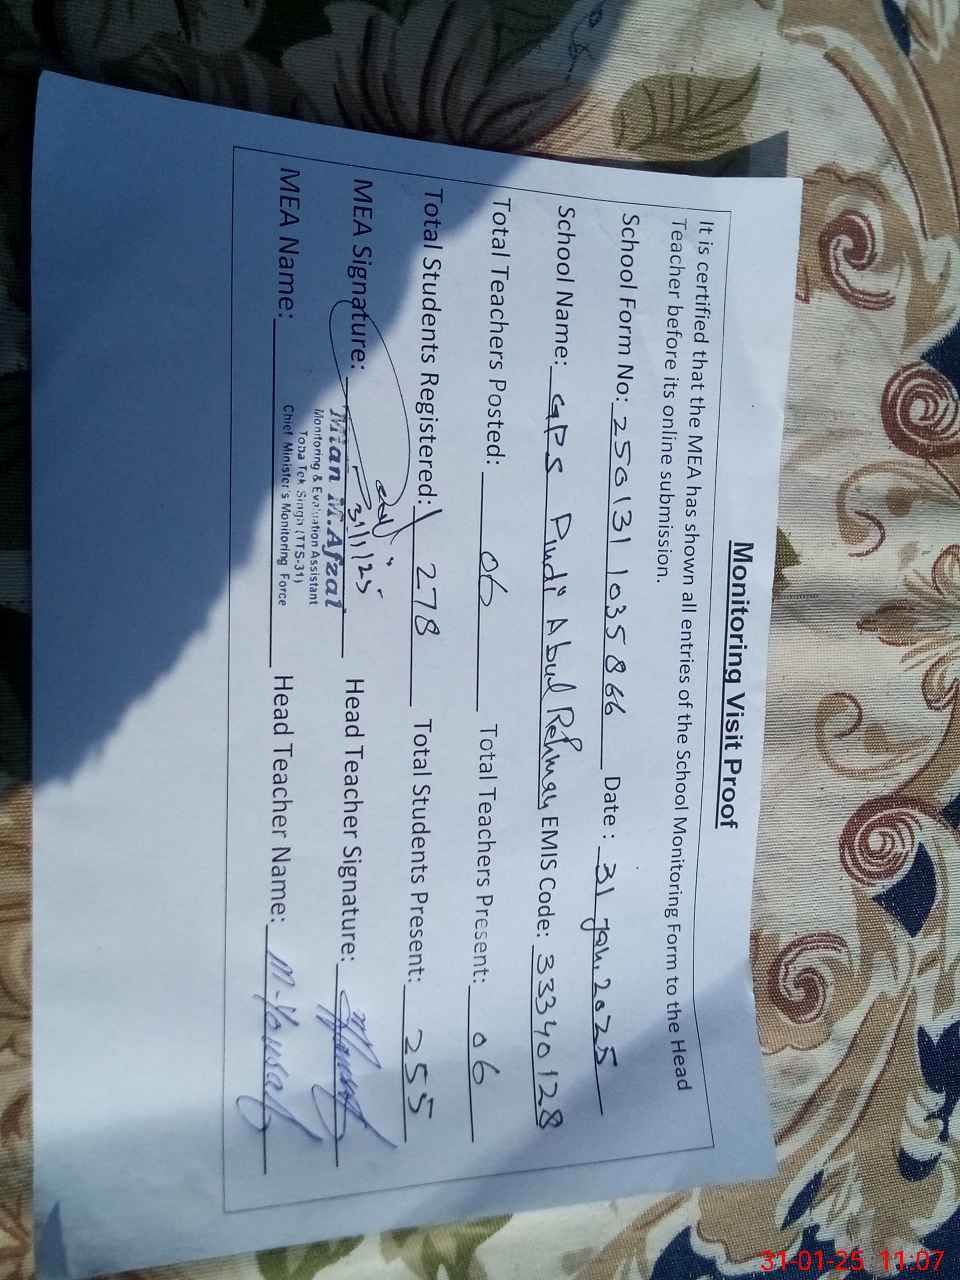 Monitoring Visit Proof
It is certified that the MEA has shown all entries of the School Monitoring Form to the Head
Teacher before its online submission.
School Form No: 250131 1035866 Date : 31 Jan. 2025
School Name: GPS Pindi Abul Rehman EMIS Code: 33340128
Total Teachers Posted: 06 Total Teachers Present: 06
Total Students Registered: 278 Total Students Present: 255
MEA Signature: 31/1/25 Head Teacher Signature:
Mian M.Afzal
Monitoring & Evaluation Assistant
Toba Tek Singh (TTS-31)
Chief Minister's Monitoring Force
MEA Name: Head Teacher Name: M-Yousaf
31-01-25 11:07